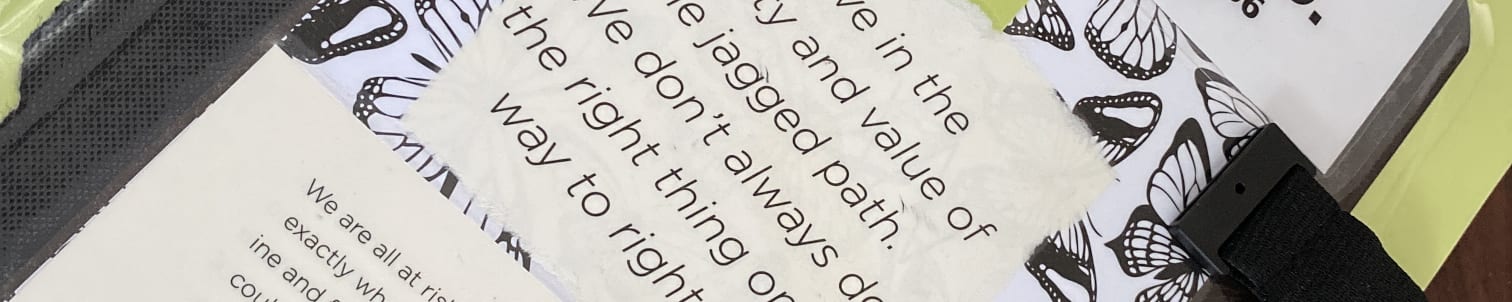 ve in the
ty and value of
he jagged path.
We don't always do
the right thing on
way to right
We are all at ris
exactly wh
ine and
cou